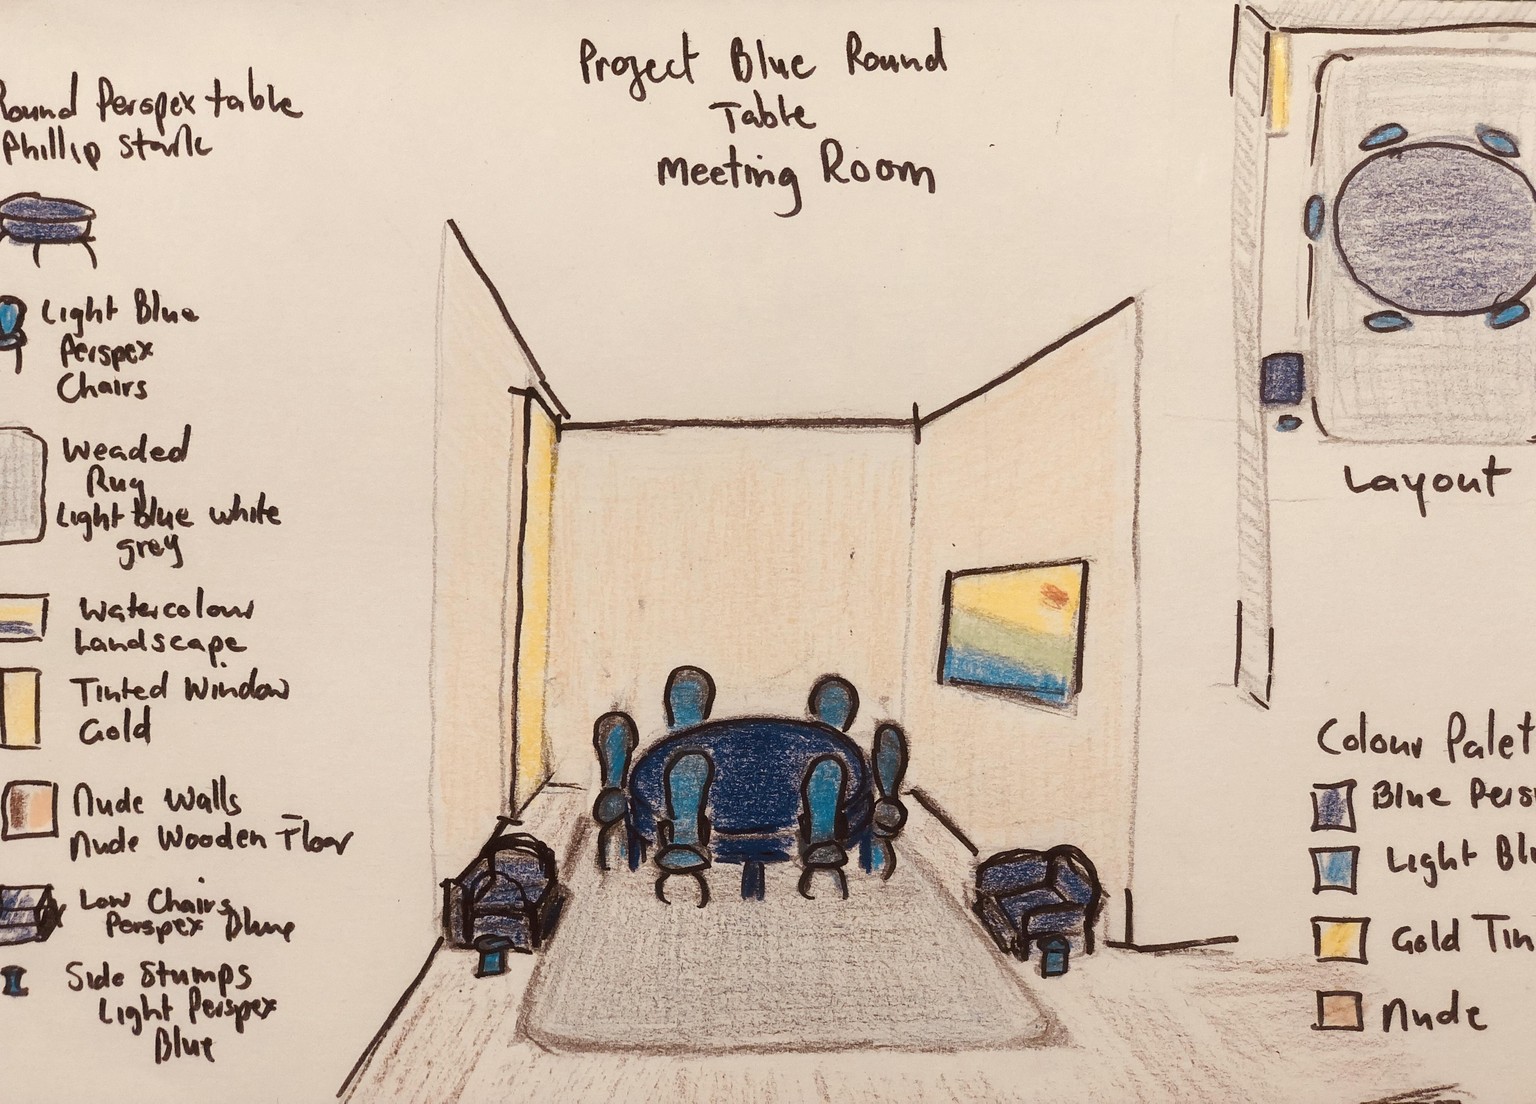 Project Blue Round
Table
Meeting Room
Round Perspex table
Phillip Stark
Light Blue
Perspex
Chairs
Weaded
Rug
Light Blue white
grey
Watercolour
Landscape
Tinted Window
Gold
Nude Walls
Nude Wooden Floor
Low Chairs
Perspex Blue
Side Stumps
Light Perspex
Blue
Layout
Colour Palet
Blue Persp
Light Blu
Gold Tin
Nude